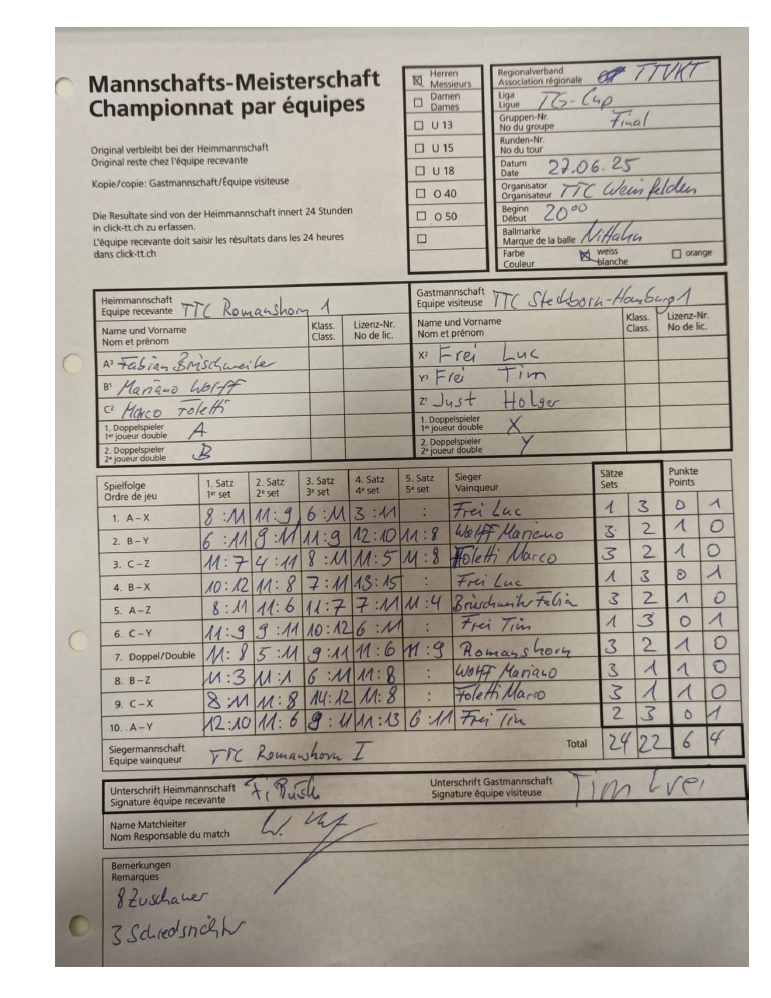 Mannschafts-Meisterschaft
Championnat par équipes
Original verbleibt bei der Heimmannschaft
Original reste chez l'équipe recevante
Kopie/copie: Gastmannschaft/Équipe visiteuse
Die Resultate sind von der Heimmannschaft innert 24 Stunden
in click-tt.ch zu erfassen.
L'équipe recevante doit saisir les résultats dans les 24 heures
dans click-tt.ch
Herren
Messieurs
Damen
Dames
U 13
U 15
U 18
O 40
O 50
Regionalverband
Association régionale TTVKT
Liga
Ligue TG-Cup
Gruppen-Nr.
No du groupe Final
Runden-Nr.
No du tour
Datum
Date 27.06.25
Organisator
Organisateur TTC Weinfelden
Beginn
Début 20⁰⁰
Ballmarke
Marque de la balle Nittaku
Farbe weiss orange
Couleur blanche
Heimmannschaft
Equipe recevante TTC Romanshorn 1
Name und Vorname Klass. Lizenz-Nr.
Nom et prénom Class. No de lic.
A³ Fabian Brüschweiler
B¹ Mariano Wolff
C² Marco Foletti
1. Doppelspieler
1er joueur double A
2. Doppelspieler
2e joueur double B
Gastmannschaft
Equipe visiteuse TTC Steckborn-Homburg 1
Name und Vorname Klass. Lizenz-Nr.
Nom et prénom Class. No de lic.
X² Frei Luc
Y³ Frei Tim
Z¹ Just Holger
1. Doppelspieler
1er joueur double X
2. Doppelspieler
2e joueur double Y
Spielfolge 1. Satz 2. Satz 3. Satz 4. Satz 5. Satz Sieger Sätze Punkte
Ordre de jeu 1er set 2e set 3e set 4e set 5e set Vainqueur Sets Points
1. A – X 8:11 11:9 6:11 3:11 : Frei Luc 1 3 0 1
2. B – Y 6:11 9:11 11:9 12:10 11:8 Wolff Mariano 3 2 1 0
3. C – Z 11:7 4:11 8:11 11:5 11:8 Foletti Marco 3 2 1 0
4. B – X 10:12 11:8 7:11 13:15 : Frei Luc 1 3 0 1
5. A – Z 8:11 11:6 11:7 7:11 11:4 Brüschweiler Fabia 3 2 1 0
6. C – Y 11:9 9:11 10:12 6:11 : Frei Tim 1 3 0 1
7. Doppel/Double 11:8 5:11 9:11 11:6 11:9 Romanshorn 3 2 1 0
8. B – Z 11:3 11:1 6:11 11:8 Wolff Mariano 3 1 1 0
9. C – X 8:11 11:8 14:12 11:8 : Foletti Marco 3 1 1 0
10. A – Y 12:10 11:6 9:11 11:13 6:11 Frei Tim 2 3 0 1
Siegermannschaft Total 24 22 6 4
Equipe vainqueur TTC Romanshorn I
Unterschrift Heimmannschaft
Signature équipe recevante
Unterschrift Gastmannschaft
Signature équipe visiteuse Tim Frei
Name Matchleiter
Nom Responsable du match
Bemerkungen
Remarques
8 Zuschauer
3 Schiedsrichter